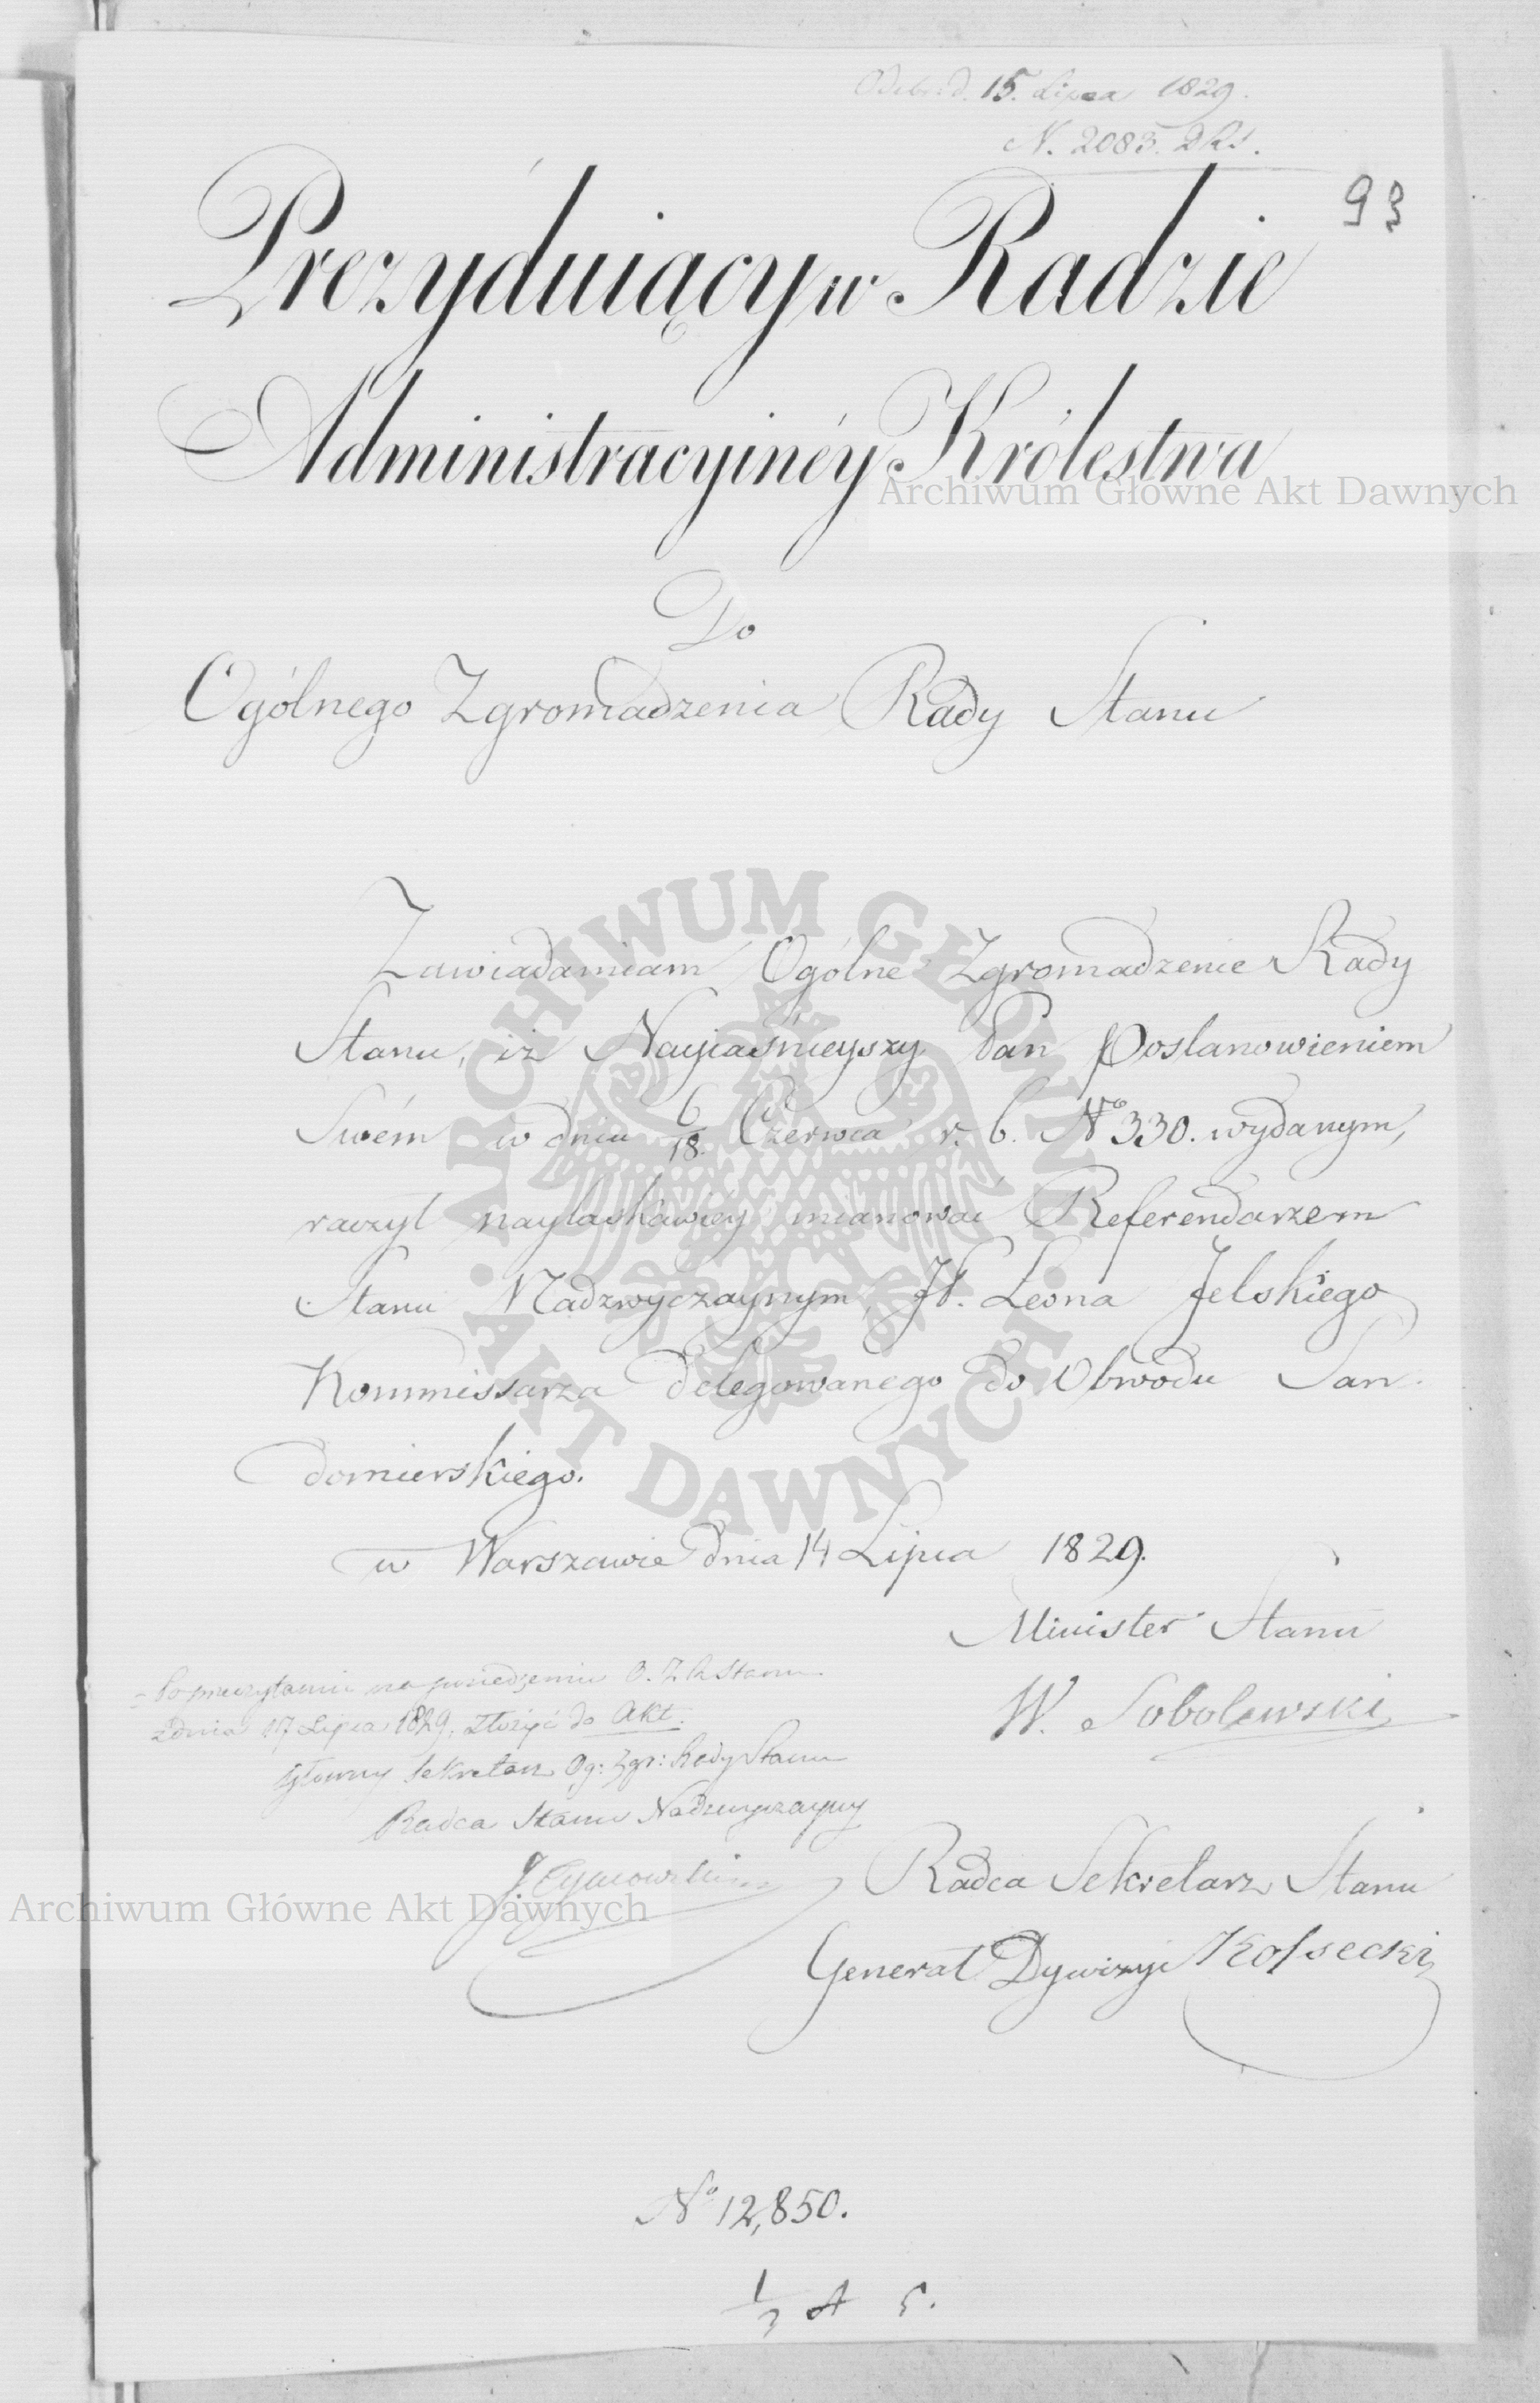 Odebr. d. 15. Lipca 1829.
N. 2083.
93
Prezyduiący w Radzie
Administracyinéy Królestwa
Archiwum Główne Akt Dawnych
Do
Ogólnego Zgromadzenia Rady Stanu
ARCHIWUM GŁÓWNE AKT DAWNYCH
Zawiadamiam Ogólne Zgromadzenie Rady
Stanu, iż Nayiaśnieyszy Pan Postanowieniem
Swém w dniu 6/18. Czerwca r. b. No 330. wydanym,
raczył nayłaskawiéy mianować Referendarzem
Stanu Nadzwyczaynym, JP. Leona Jelskiego
Kommissarza delegowanego do Obwodu San-
domierskiego.
w Warszawie dnia 14 Lipca 1829.
Minister Stanu
W. Sobolewski
Po przeczytaniu na posiedzeniu O. Z. R. Stanu
z dnia 17 Lipca 1829, złożyć do Akt.
Główny Sekretarz Og: Zgr: Rady Stanu
Radca Stanu Nadzwyczayny
J. Tymowski
Radca Sekretarz Stanu
Generał Dywizyi Kossecki
Archiwum Główne Akt Dawnych
No 12,850.